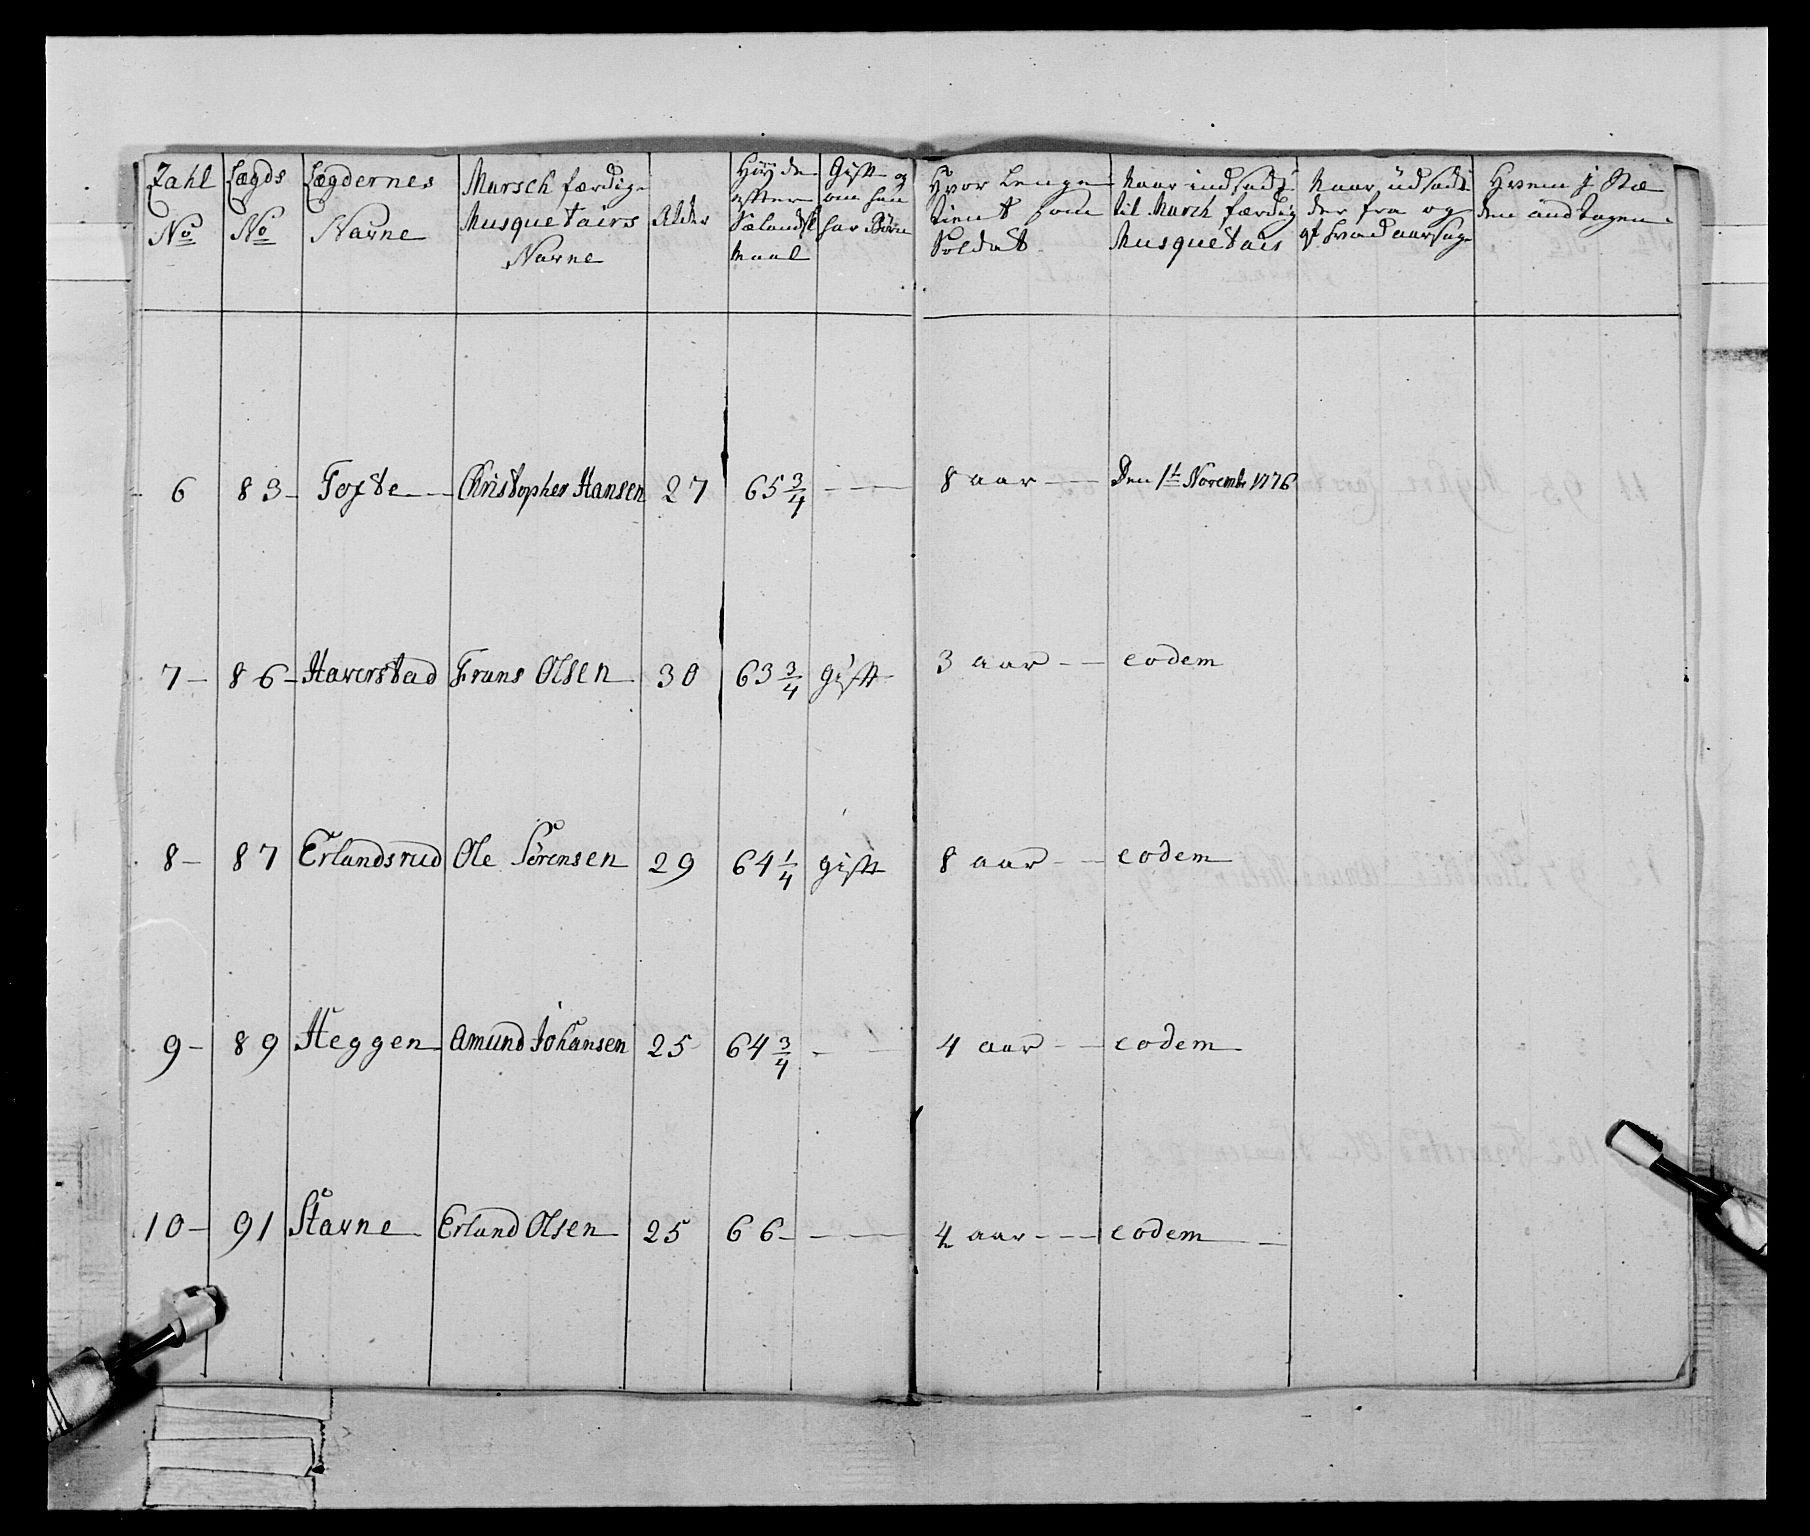 Zahl No | Lægds No | Lægdernes Navne | Marsch færdige Musquetairs Navne | Alder | Høyde efter Sælandsk Maal | Gift og om han har Børn | Hvor lenge tient som Soldat | Naar indsadt til March færdig Musquetair | Naar üdsadt der fra og af hvad aarsag | Hvem j Stæden andtagen
6 | 83 | Tofte | Christopher Hansen | 27 | 65 3/4 | — | 8 aar | Den 1te Novembr 1776
7 | 86 | Haverstad | Frans Olsen | 30 | 63 3/4 | gift | 3 aar | eodem
8 | 87 | Erlandsrud | Ole Sörensen | 29 | 64 1/4 | gift | 8 aar | eodem
9 | 89 | Heggen | Amund Johansen | 25 | 64 3/4 | — | 4 aar | eodem
10 | 91 | Stavne | Erland Olsen | 25 | 66 | — | 4 aar | eodem